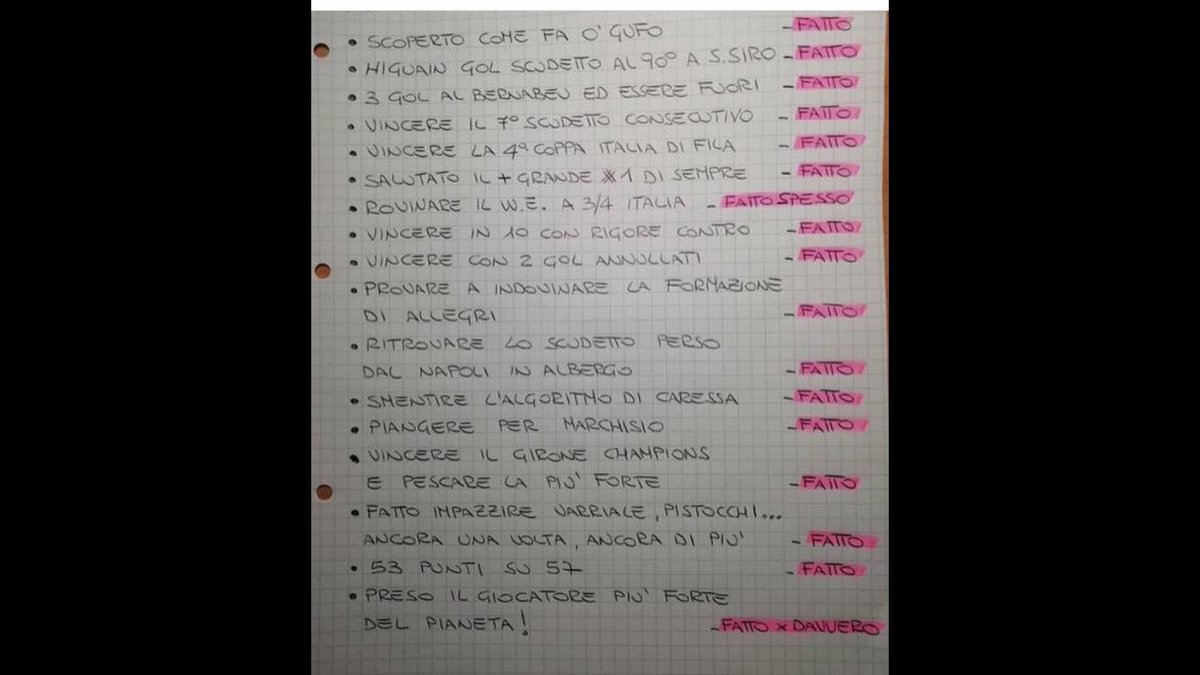 • SCOPERTO COME FA O' GUFO - FATTO
• HIGUAIN GOL SCUDETTO AL 90° A S.SIRO - FATTO
• 3 GOL AL BERNABEU ED ESSERE FUORI - FATTO
• VINCERE IL 7° SCUDETTO CONSECUTIVO - FATTO
• VINCERE LA 4ª COPPA ITALIA DI FILA - FATTO
• SALUTATO IL + GRANDE #1 DI SEMPRE - FATTO
• ROVINARE IL W.E. A 3/4 ITALIA - FATTO SPESSO
• VINCERE IN 10 CON RIGORE CONTRO - FATTO
• VINCERE CON 2 GOL ANNULLATI - FATTO
• PROVARE A INDOVINARE LA FORMAZIONE
DI ALLEGRI - FATTO
• RITROVARE LO SCUDETTO PERSO
DAL NAPOLI IN ALBERGO - FATTO
• SMENTIRE L'ALGORITMO DI CARESSA - FATTO
• PIANGERE PER MARCHISIO - FATTO
• VINCERE IL GIRONE CHAMPIONS
E PESCARE LA PIU' FORTE - FATTO
• FATTO IMPAZZIRE VARRIALE, PISTOCCHI...
ANCORA UNA VOLTA, ANCORA DI PIU' - FATTO
• 53 PUNTI SU 57 - FATTO
• PRESO IL GIOCATORE PIU' FORTE
DEL PIANETA! - FATTO x DAVVERO